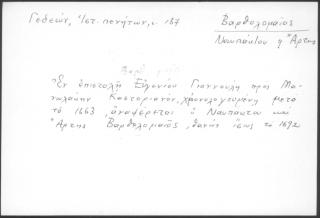 Γεδεών, Ἱστ. πενήτων, σ. 187
Βαρθολομαῖος
Ναυπάκτου ἢ Ἄρτης
Ἐν ἐπιστολῇ Εὐγενίου Γιαννούλη προς Μα-
νολάκην Καστοριανόν, χρονολογουμένῃ μετὰ
τὸ 1663, ἀναφέρεται ὁ Ναυπάκτου καὶ
Ἄρτης Βαρθολομαῖος, θανὼν ἴσως τὸ 1692